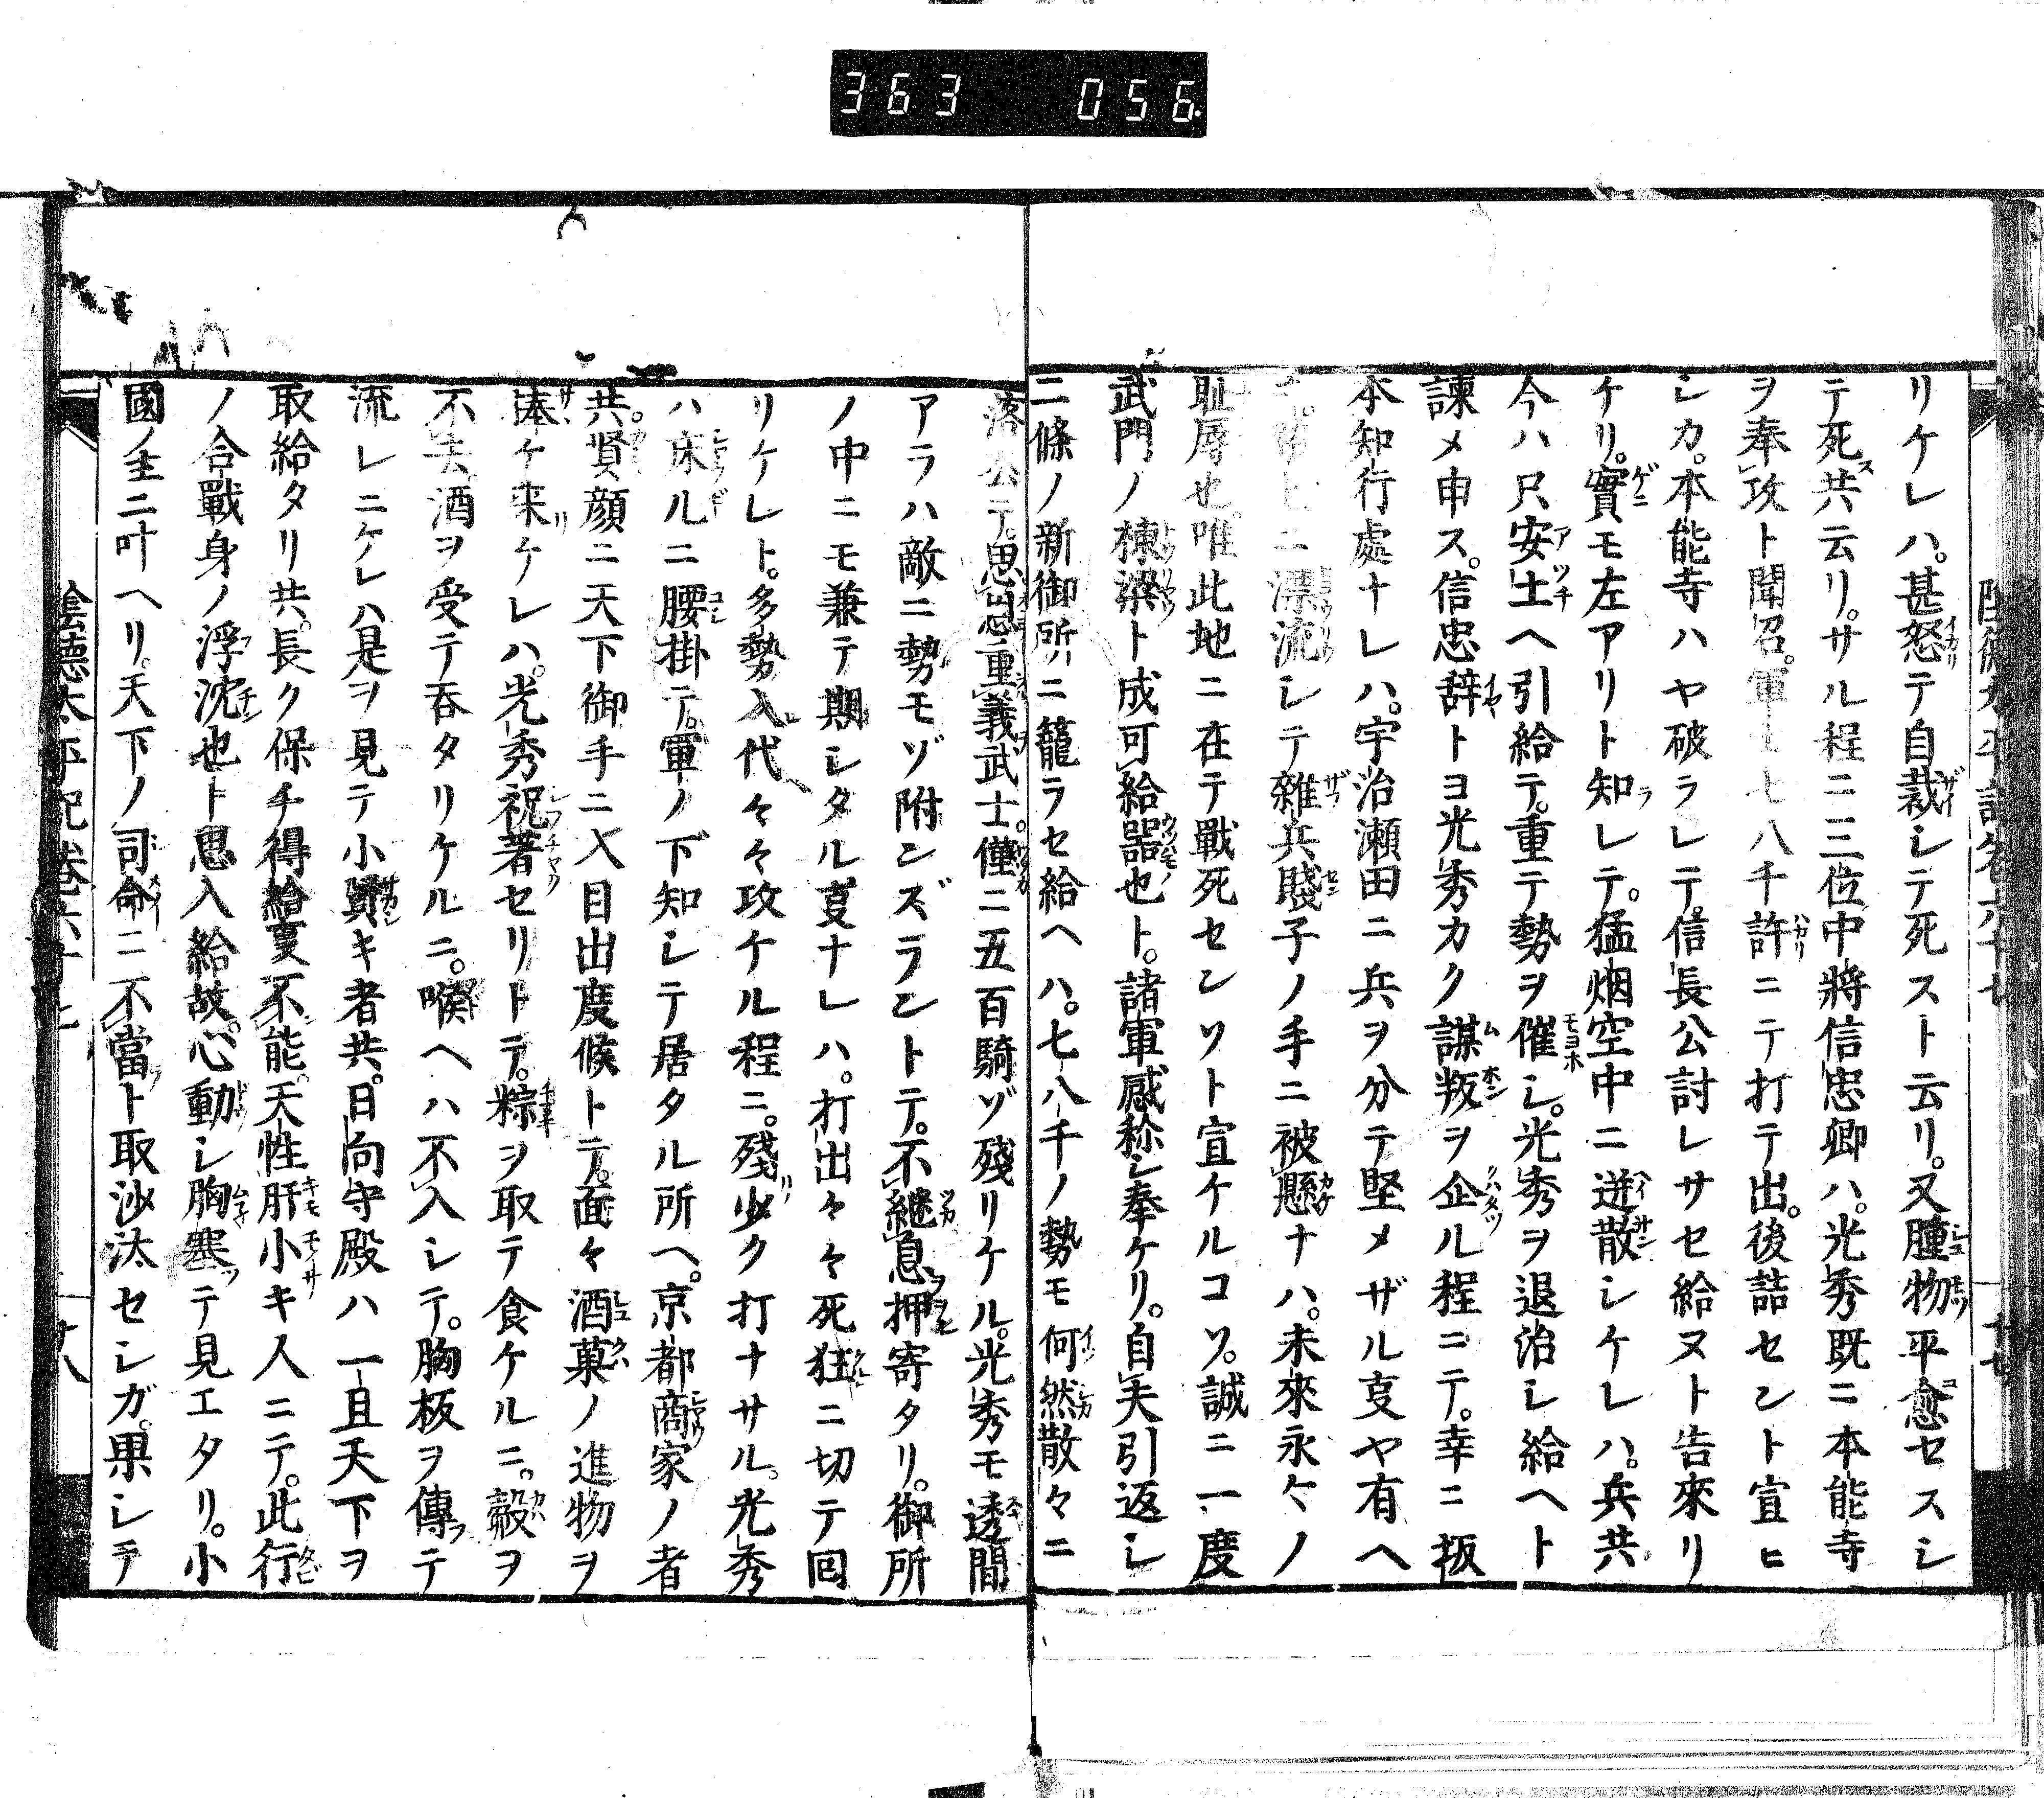 363 056
リケレハ。甚怒テ自裁シテ死スト云リ。又腫物平愈セスシ
テ死共云リ。サル程ニ三位中將信忠卿ハ。光秀既ニ本能寺
ヲ奉攻ト聞召。軍士七八千許ニテ打テ出。後詰セント宣ヒ
シカ。本能寺ハヤ破ラレテ。信長公討レサセ給ヌト告來リ
ケリ。實モ左アリト知レテ。猛烟空中ニ迸散シケレハ。兵共
今ハ只安土ヘ引給テ。重テ勢ヲ催シ。光秀ヲ退治シ給ヘト
諫メ申ス。信忠辞トヨ光秀カク謀叛ヲ企ル程ニテ。幸ニ坂
本知行處ナレハ。宇治瀬田ニ兵ヲ分テ堅メザル叓ヤ有ヘ
ニ漂流シテ雜兵賤子ノ手ニ被懸ナハ。未來永々ノ
耻辱也。唯此地ニ在テ戰死センソト宣ケルコソ。誠ニ一度
武門ノ棟梁ト成可給器也ト。諸軍感称シ奉ケリ。自夫引返シ
二條ノ新御所ニ籠ラセ給ヘハ。七八千ノ勢モ何然散々ニ
落テ。思恩重義武士。僅ニ五百騎ゾ殘リケル。光秀モ透間
アラハ敵ニ勢モゾ附ンズラントテ。不継息押寄タリ。御所
ノ中ニモ兼テ期シタル叓ナレハ。打出々々死狂ニ切テ囘
リケレト。多勢入代々々攻ケル程ニ。殘少ク打ナサル。光秀
ハ床ルニ腰掛テ。軍ノ下知シテ居タル所ヘ。京都商家ノ者
共。賢顔ニ天下御手ニ入目出度候トテ。面々酒菓ノ進物ヲ
捧ケ来ケレハ。光秀祝著セリトテ。粽ヲ取テ食ケルニ。縠ヲ
不去酒ヲ受テ呑タリケルニ。喉ヘハ不入シテ。胸板ヲ傳テ
流レニケレハ是ヲ見テ小賢キ者共。日向守殿ハ一旦天下ヲ
取給タリ共。長ク保チ得給叓不能。天性肝小キ人ニテ。此行
ノ合戰身ノ浮沈也ト思入給故。心動シ胸塞テ見エタリ。小
國ノ主ニ叶ヘリ。天下ノ司命ニ不當ト取沙汰セシガ。果シテ
陰德太平記卷六十七
十八